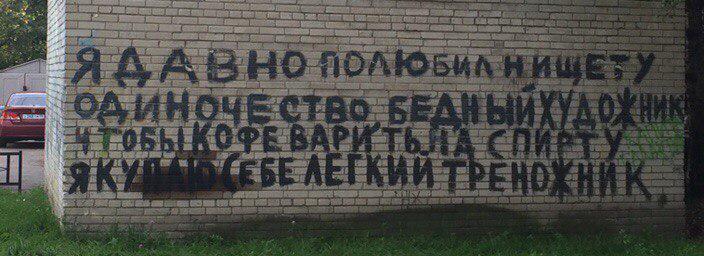 Я ДАВНО ПОЛЮБИЛ НИЩЕТУ
ОДИНОЧЕСТВО БЕДНЫЙ ХУДОЖНИК
ЧТОБЫ КОФЕ ВАРИТЬ НА СПИРТУ
Я КУПЛЮ СЕБЕ ЛЕГКИЙ ТРЕНОЖНИК